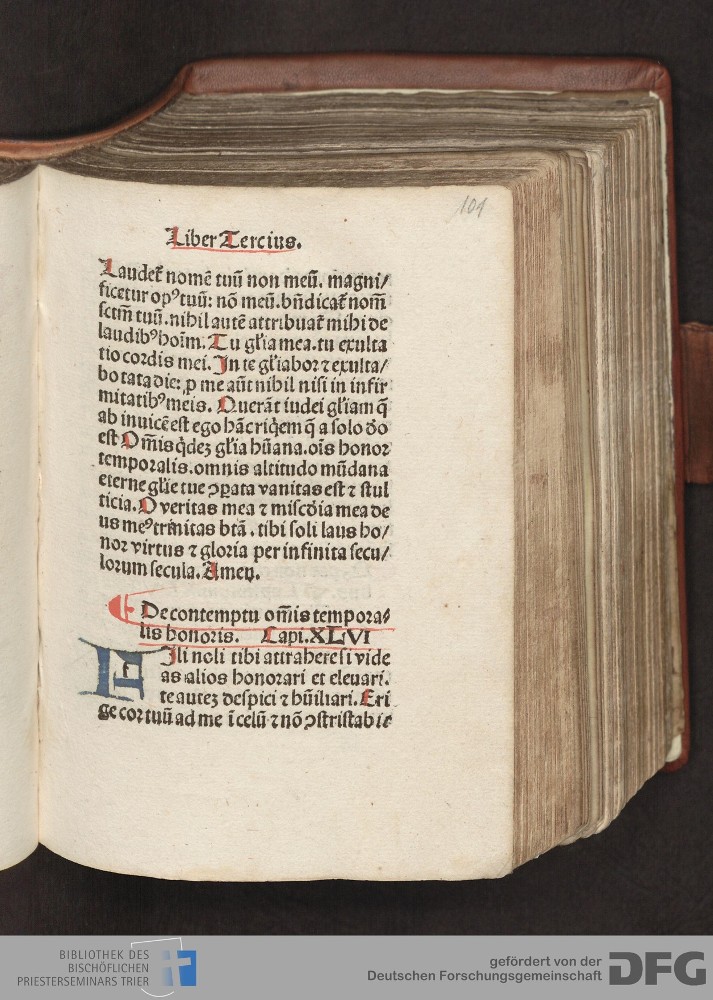 101
Liber Tercius.
Laudet᷑ nomē tuū non meū. magni/
ficetur opꝰ tuū: nō meū. bn̄dicat᷑ nom̄
sctm̄ tuū. nihil autē attribuat᷑ mihi de
laudibꝰ hoīm. Tu gl̓ia mea. tu exulta
tio cordis mei. In te gl̓iabor ⁊ exulta/
bo tota die: ꝓ me aūt nihil nisi in infir
mitatibꝰ meis. Querāt iudei gl̓iam q̄
ab inuicē est ego hāc riq̄em q̄ a solo deo
est Om̄is q̇dez gl̓ia hūana. oīs honor
temporalis. omnis altitudo mūdana
eterne gl̓ie tue ꝯꝑata vanitas est ⁊ stul
ticia. O veritas mea ⁊ misc̄dia mea de
us meꝰ trinitas btā. tibi soli laus ho/
nor virtus ⁊ gloria per infinita secu/
lorum secula. Amen.
De contemptu om̄is tempora/
lis honoris. Capi. XLVI
Fili noli tibi attrahere si vide
as alios honorari et eleuari.
te autez despici ⁊ hūiliari. Eri
ge cor tuū ad me ī celū ⁊ nō ꝯtristabit
BIBLIOTHEK DES
BISCHÖFLICHEN
PRIESTERSEMINARS TRIER
gefördert von der
Deutschen Forschungsgemeinschaft
DFG